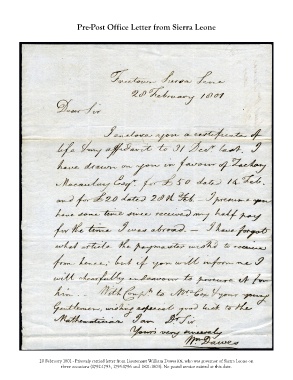 Pre-Post Office Letter from Sierra Leone
Freetown Sierra Leone
28 February 1801
Dear Sir
I enclose you a certificate of
life & my affidavit to 31 Decr last. I
have drawn on you in favour of Zachary
Macaulay Esqr. for £50 dated 14 Feb.
and for £20 dated 28th Feb. I presume you
have some time since received my half pay
for the time I was abroad — I have forgot
what article the paymaster wished to receive
from hence; but if you will inform me I
will chearfully endeavour to procure it for
him. — With Compts to Mrs Cox & your young
Gentlemen, wishing especial good luck to the
Mathematician I am Dr Sir
Yours very sincerely
Wm Dawes
28 February 1801 - Privately carried letter from Lieutenant William Dawes RN, who was governor of Sierra Leone on
three occasions (1792-1794, 1795-1796 and 1801-1803). No postal service existed at this date.